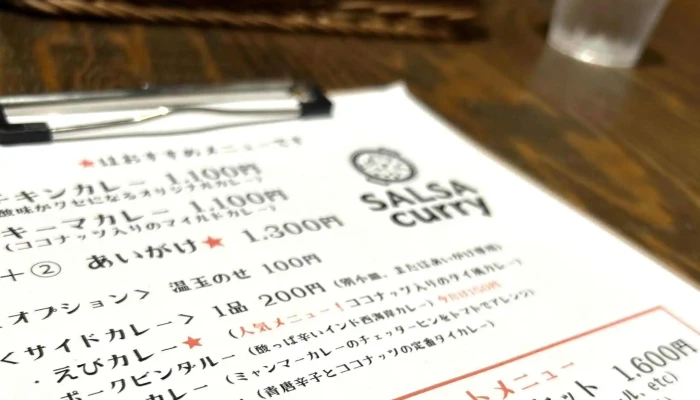 ★はおすすめメニューです
チキンカレー 1,100円
酸味がクセになるオリジナルカレー)
キーマカレー 1,100円
(ココナッツ入りのマイルドカレー)
+② あいがけ★ 1,300円
SALSA
curry
オプション> 温玉のせ 100円
<サイドカレー> 1品 200円 (別小皿、またはあいがけ専用)
・えびカレー★ (人気メニュー!ココナッツ入りのタイ風カレー)
ポークビンダルー (酸っぱ辛いインド西海岸カレー)
カレー (ミャンマーカレーのチェッターヒンをトマトでアレンジ)
(青唐辛子とココナッツの定番タイカレー)
トメニュー
セット 1,600円
etc)